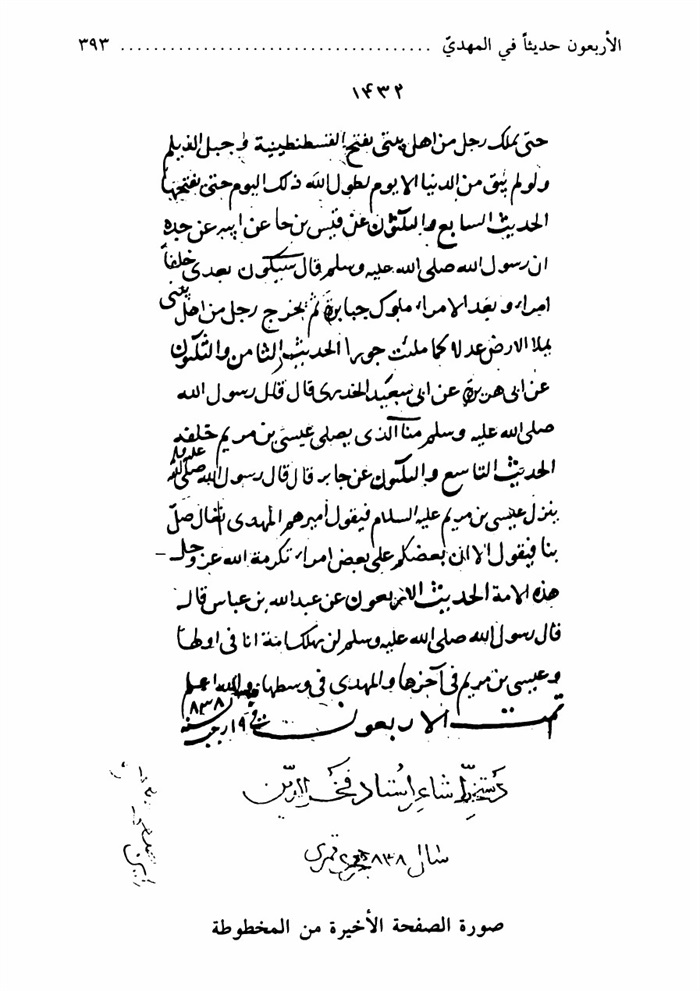 الأربعون حديثاً في المهديّ ..................................... ٣٩٣
١٤٣٢
حتى يملك رجل من اهل بيتى يفتح القسطنطينية و جبل الديلم
ولو لم يبق من الدنيا الا يوم لطول الله ذلك اليوم حتى يفتحها
الحديث السابع والثلثون عن قيس بن جا عن ابيه عن جده
ان رسول الله صلى الله عليه وسلم قال سيكون بعدى خلفاً
امراء و بعد الامراء ملوك جبابرة ثم يخرج رجل من اهل بيتى
يملا الارض عدلا كما ملئت جورا الحديث الثامن والثلثون
عن ابى هريرة عن ابى سعيد الخدرى قال قال رسول الله
صلى الله عليه وسلم منا الذى يصلى عيسى بن مريم خلفه
الحديث التاسع والثلثون عن جابر قال قال رسول الله صلى الله عليه
ينزل عيسى بن مريم عليه السلام فيقول اميرهم المهدى تعال صلّ
بنا فيقول الا ان بعضكم على بعض امراء تكرمة الله عز وجل
هذه الامة الحديث الاربعون عن عبدالله بن عباس قال
قال رسول الله صلى الله عليه وسلم لن يهلك امة انا فى اولها
وعيسى بن مريم فى آخرها والمهدى فى وسطها والله اعلم
تمت الاربعون فى ١٩ رجب سنه ٨٣٨
دستخط شاعر استاد فخرالدين
سال ٨٣٨ هجرى قمرى
صورة الصفحة الأخيرة من المخطوطة